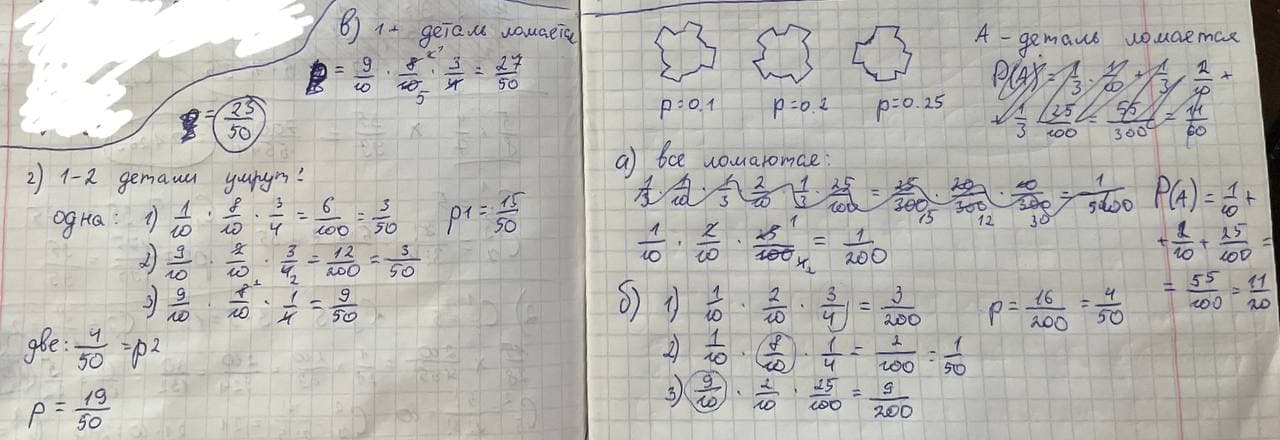 в) 1+ деталь ломается
= 9/10 · 8/10 5 · 3/4 = 27/50
= 23/50
г) 1-2 детали умрут!
одна: 1) 1/10 · 8/10 · 3/4 = 6/100 = 3/50 p1 = 15/50
2) 9/10 · 2/10 · 3/4 2 = 12/200 = 3/50
3) 9/10 · 8/10 · 1/4 = 9/50
две: 4/50 = p2
p = 19/50
А - деталь ломается
p=0.1 p=0.2 p=0.25
P(A) = 1/3 · 1/10 + 1/3 · 2/10 +
+ 1/3 · 25/100 = 55/300 = 11/60
а) все ломаются:
1/3 · 1/10 · 1/3 · 2/10 · 1/3 · 25/100 = 25/300 · 20/300 · 10/300 = 1/5400
15 12 30
1/10 · 2/10 · 25/100 = 1/200
P(A) = 1/10 +
+ 2/10 + 25/100 =
= 55/100 = 11/20
б) 1) 1/10 · 2/10 · 3/4 = 3/200 p = 16/200 = 4/50
2) 1/10 · 8/10 · 1/4 = 2/100 = 1/50
3) 9/10 · 2/10 · 25/100 = 9/200